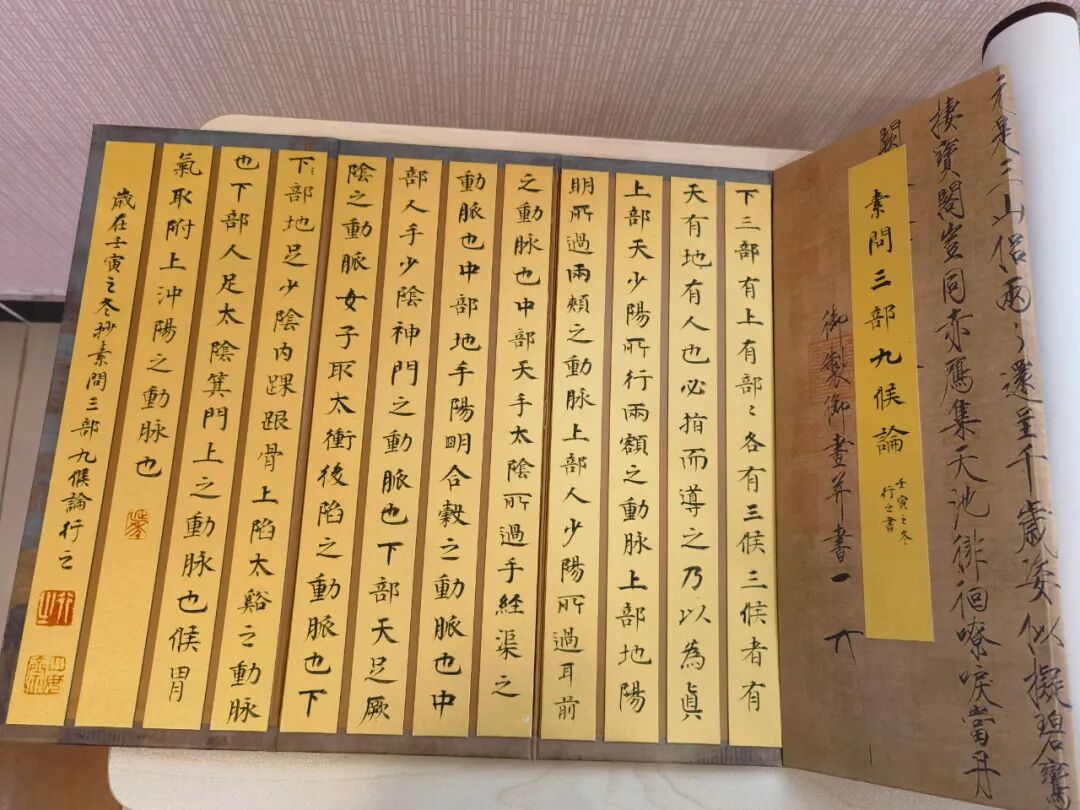 元是三山侶兩〻還呈千歲姿似擬碧鸞
棲寶閣豈同赤鴈集天池徘徊嘹唳當丹
闕
素問三部九候論
壬寅之冬
行之書
御製御畫并書
天下一人
下三部有上有部〻各有三候三候者有
天有地有人也必指而導之乃以為真
上部天少陽所行兩額之動脈上部地陽
明所過兩頰之動脈上部人少陽所過耳前
之動脈也中部天手太陰所過手経渠之
動脈也中部地手陽明合穀之動脈也中
部人手少陰神門之動脈也下部天足厥
陰之動脈女子取太衝後陷之動脈也下
下〻部地足少陰內踝跟骨上陷太谿之動脈
也下部人足太陰箕門上之動脈也候胃
氣取附上沖陽之動脈也
歲在壬寅之冬抄素問三部九候論行之